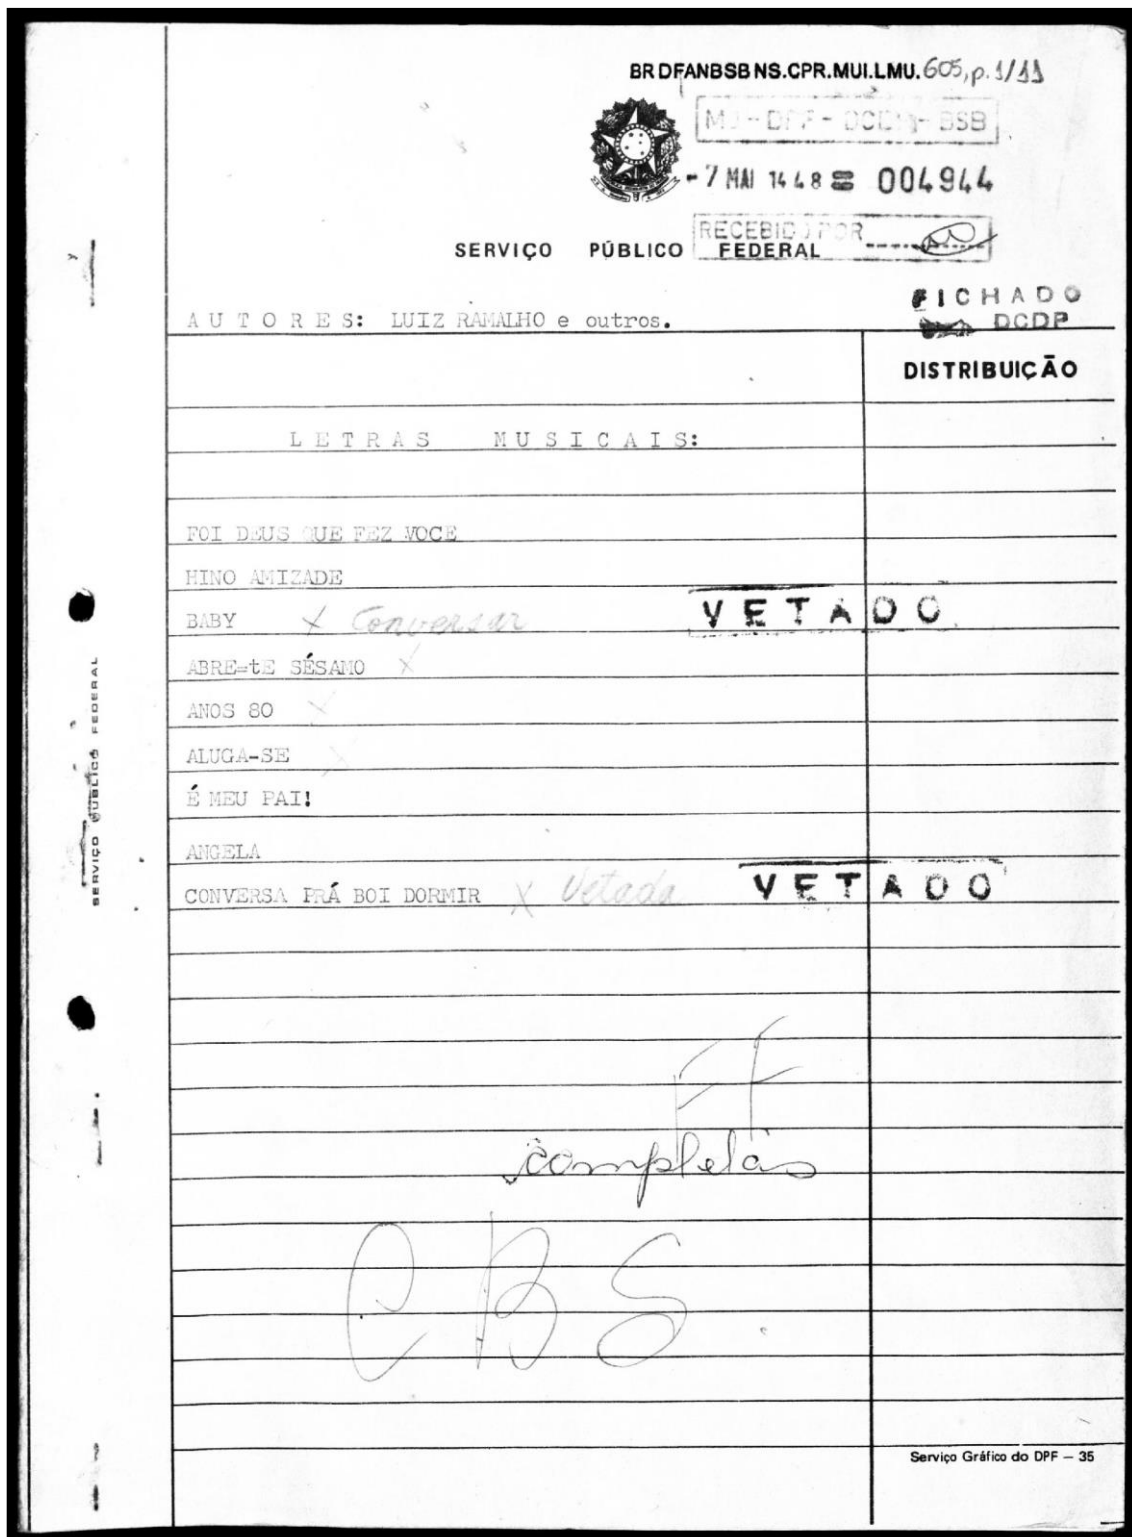 BR DFANBSB NS.CPR.MUI.LMU.605, p. 1/11
MJ - DPF - DCDP - BSB
- 7 MAI 1448 004944
RECEBIDO POR
SERVIÇO PÚBLICO FEDERAL
FICHADO
DCDP
A U T O R E S: LUIZ RAMALHO e outros.
DISTRIBUIÇÃO
L E T R A S M U S I C A I S:
FOI DEUS QUE FEZ VOCE
HINO AMIZADE
BABY X Conversar VETADO
ABRE=tE SÉSAMO X
ANOS 80 X
ALUGA-SE X
É MEU PAI!
ANGELA
CONVERSA PRÁ BOI DORMIR X Vetada VETADO
completas
CBS
SERVIÇO PÚBLICO FEDERAL
Serviço Gráfico do DPF – 35